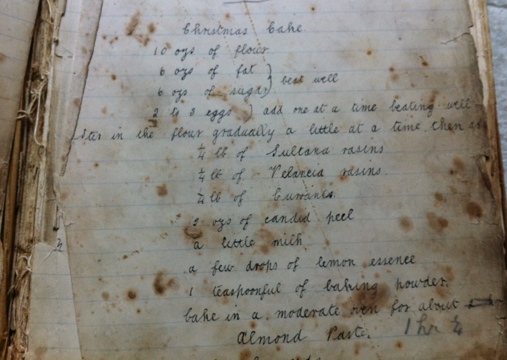 Christmas Cake
10 ozs of flour
6 ozs of fat } beat well
6 ozs of sugar
2 to 3 eggs } add one at a time beating well
Stir in the flour gradually a little at a time then
1/4 lb of Sultana rasins
1/4 lb of Velancia rasins
1/4 lb of Currants
2 ozs of candied peel
a little milk
a few drops of lemon essence
1 teaspoonful of baking powder.
bake in a moderate oven for about
Almond Paste. 1 hr 1/4